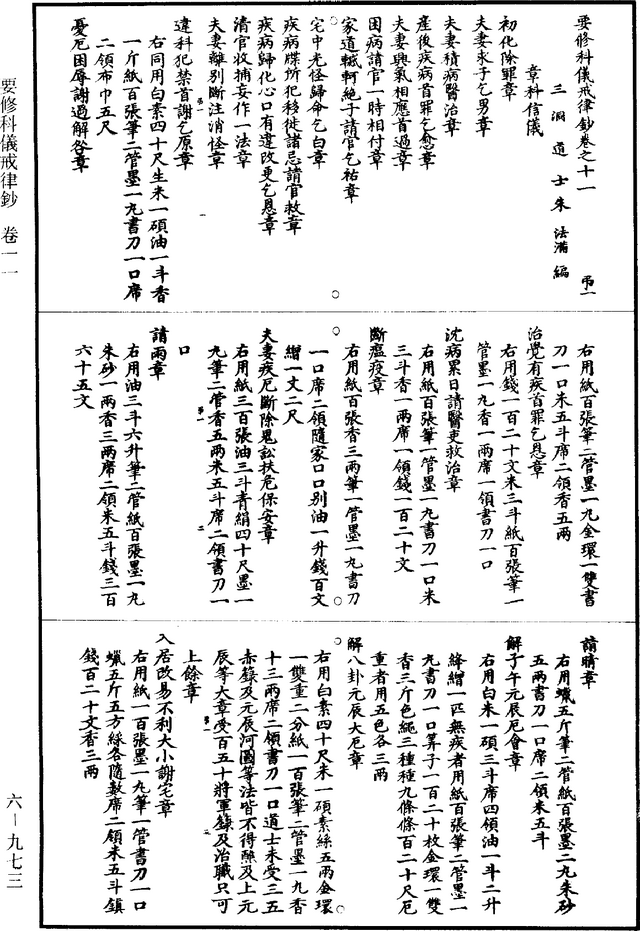 要修科儀戒律鈔卷之十一 弔一
三洞道士朱法滿編
章科信儀
初化除罪章
夫妻求子乞男章
夫妻積病醫治章
產後疾病首罪乞愈章
夫妻與氣相應首過章
困病請官一時相付章
家道轗軻絕子請官乞祐章
宅中光怪歸命乞白章
疾病牒所犯移徙諸忌請官救章
疾病歸化心口有違改更乞恩章
清官收捕妄作一法章
夫妻離別斷注消怪章
違科犯禁首謝乞原章
右同用白素四十尺生米一碩油一斗香
一斤紙百張筆二管墨一丸書刀一口席
二領布巾五尺
憂厄困辱謝過解咎章
右用紙百張筆二管墨一丸金環一雙書
刀一口米五斗席二領香五兩
治覺有疾首罪乞恩章
右用錢一百二十文米三斗紙百張筆一
管墨一丸香一兩席一領書刀一口
沈病累日請醫吏救治章
右用紙百張筆一管墨一丸書刀一口米
三斗香一兩席一領錢一百二十文
斷瘟疫章
右用紙百張香三兩筆一管墨一丸書刀
一口席二領隨家口口別油一升錢百文
繒一丈二尺
夫妻疾厄斷除鬼訟扶危保安章
右用紙三百張油三斗青絹四十尺墨一
丸筆二管香五兩米五斗席二領書刀一
口
請雨章
右用油三斗六升筆二管紙百張墨一丸
朱砂一兩香三兩席二領米五斗錢三百
六十五文
請晴章
右用蠟五斤筆二管紙百張墨二丸朱砂
五兩書刀一口席二領米五斗
解子午元辰厄會章
右用白米一碩三斗席四領油一斗二升
絳繒一匹無疾者用紙百張筆二管墨一
丸書刀一口筭子一百二十枚金環一雙
香三斤色繩三種種九條條百二十尺厄
重者用五色各三兩
解八卦元辰大厄章
右用白素四十尺米一碩素絲五兩金環
一雙重二分紙一百張筆二管墨一丸香
十三兩席二領書刀一口道士未受三五
赤籙及元辰河圖等法皆不得醮及上元
辰等大章受百五十將軍籙及治職只可
上餘章
入居改易不利大小謝宅章
右用紙一百張墨一丸筆一管書刀一口
蠟五斤五方綵各隨數席二領米五斗鎮
錢百二十文香三兩
要修科儀戒律鈔 卷一一
六－九七三